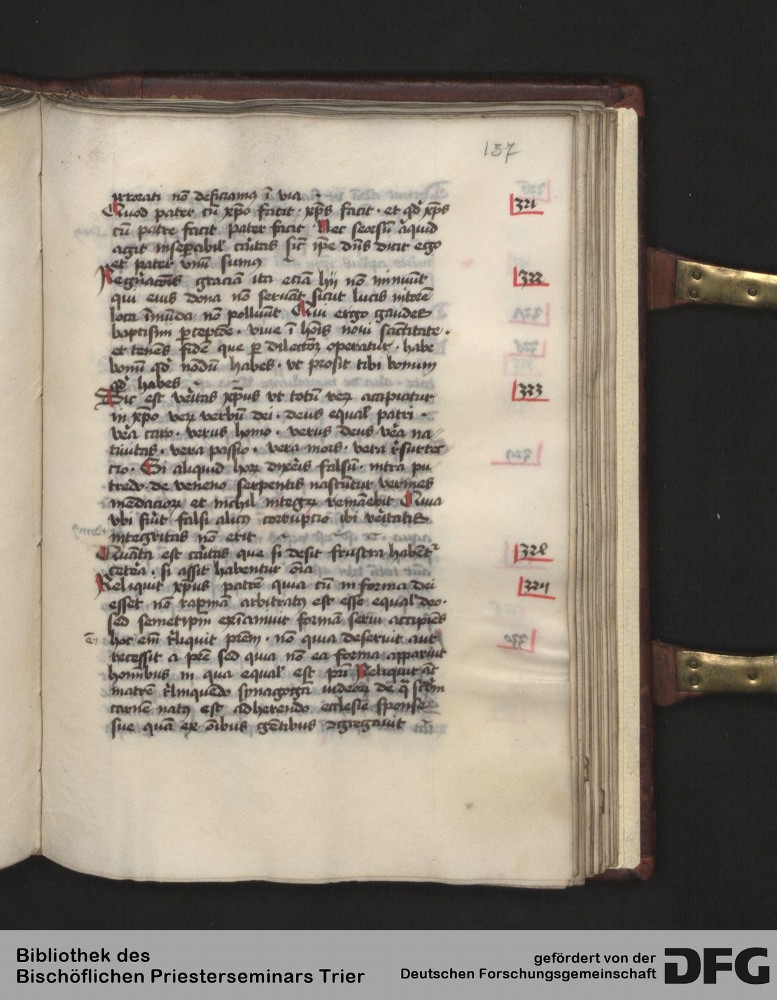 137
irrorati nō deficiamꝰ ī via
Quod pater cū xp̄o facit · xp̄s facit · et qd̄ xp̄s
321
cū patre facit pater facit Nec seorsū aliquid
agit inseparabil' caritas sic ip̄e dn̄s dicit ego
et pater vnū sumꝰ
graciā ita eciā hii nō minuūt
322
qui eius dona nō seruāt sicut lucis
loca īmūda nō polluūt Qui ergo gaudes
baptismi ꝑceptōe · viue ī hōis noui sāctitate ·
et tenēs fidē que ꝑ dilectōꝫ operatur · habe
bonū qd̄ nōdū habes · vt prosit tibi bonum
qd̄ habes
Sic est vēritas xp̄us vt totū verꝫ accipiatur
323
in xp̄o verꝫ verbū dei · deus equal' patri ·
vēa caro · verus homo · verus deus vēa na
tiuitas · vera passio · vera mors · vera r̄surrec
cio · Si aliquid horꝫ dixeris falsū · intra pu
tredo de veneno serpentis nascūtur vermes
mēdaciorꝫ et nichil integrꝫ remanebit Quia
vbi fūit falsi alicꝰ corrupcio ibi vēitatis
integritas nō erit
Quāta est cāitas que si desit frustra habent'
324
cetēa · si assit habentur oīa
Reliquit xp̄us patrē quia cū in forma dei
325
esset nō rapinā arbitratꝰ est esse equal' deo ·
sed semetip̄m exinaniuit formā serui accipiēs
hoc em̄ r̄liquit prēm · nō quia deseruit aut
recessit a prē sed quia nō ea forma apparuit
hominibus in qua equal' est pr̄i Reliquit āt
matrē r̄linquēdo sinagogā iudeorꝫ de q̄ scd̄m
carnē natꝰ est adherendo ecclesie sponse
sue quā ex oībus gētibus ꝯgregauit
Bibliothek des
Bischöflichen Priesterseminars Trier
gefördert von der
Deutschen Forschungsgemeinschaft
DFG